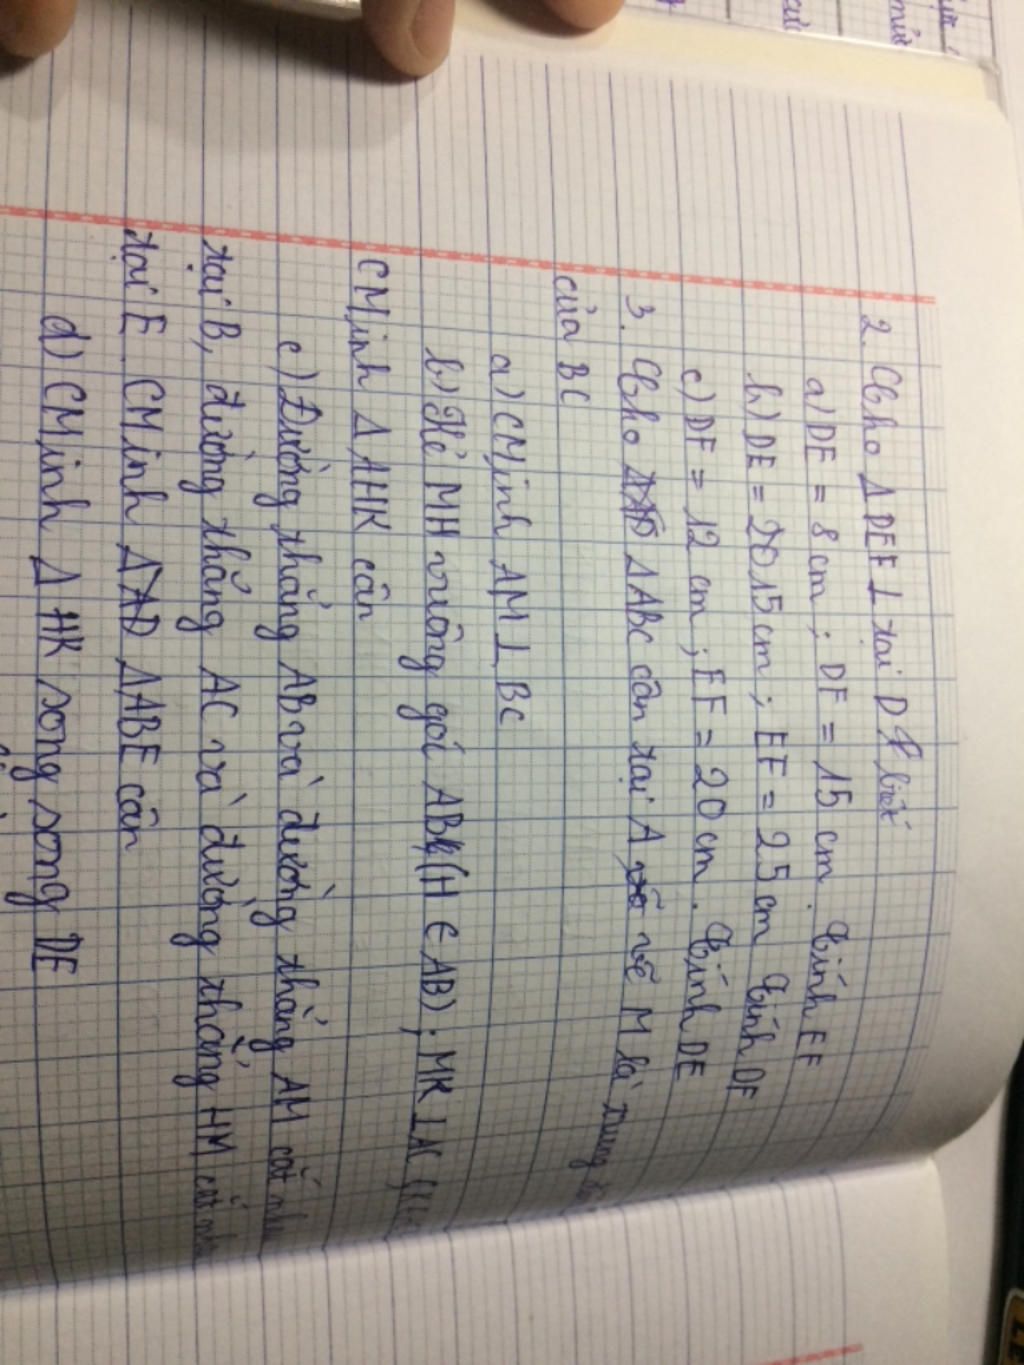 2. Cho Δ DEF ⊥ tại D biết
a) DE = 8 cm ; DF = 15 cm. Tính EF
b) DE = 20 15 cm ; EF = 25 cm Tính DF
c) DF = 12 cm ; EF = 20 cm. Tính DE
3. Cho ΔABC cân tại A vẽ M là trung
của BC
a) CMinh AM ⊥ BC
b) Kẻ MH vuông gói AB (H ∈ AB) ; MK ⊥ AC
CMinh Δ AHK cân
c) Đường thẳng AB và đường thẳng AM cắt
tại B, đường thẳng AC và đường thẳng HM cắt
tại E CMinh ΔABE cân
d) CMinh Δ HK song song DE